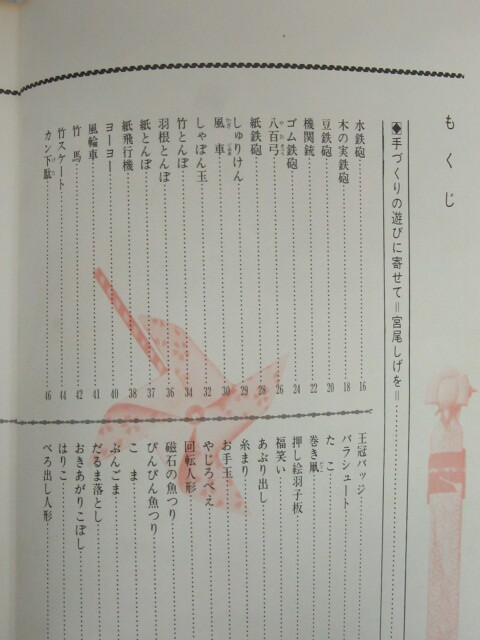 もくじ
◆手づくりの遊びに寄せて＝宮尾しげを＝
水鉄砲 16
木の実鉄砲 18
豆鉄砲 20
機関銃 22
ゴム鉄砲 24
八百弓 26
紙鉄砲 28
しゅりけん 29
風車 30
しゃぼん玉 32
竹とんぼ 34
羽根とんぼ 36
紙とんぼ 37
紙飛行機 38
ヨーヨー 40
風輪車 41
竹馬 42
竹スケート 44
カン下駄 46
王冠バッジ
パラシュート
たこ
巻き凧
押し絵羽子板
福笑い
あぶり出し
糸まり
お手玉
やじろべえ
回転人形
磁石の魚つり
ぴんぴん魚つり
こま
ぶんごま
だるま落とし
おきあがりこぼし
はりこ
べろ出し人形